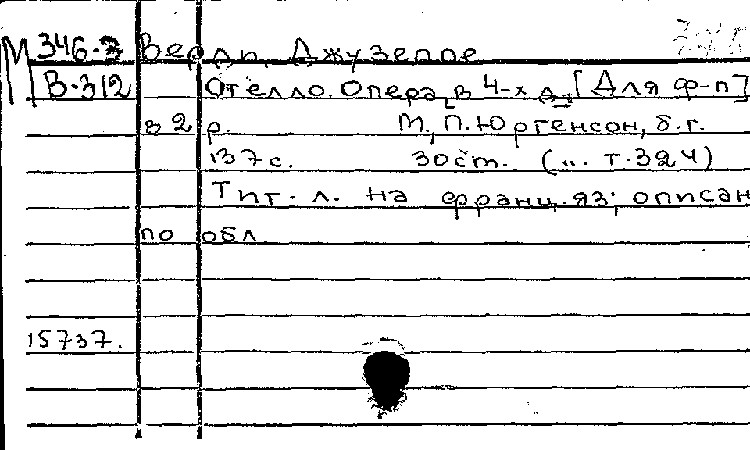 М 346.3 Верди, Джузеппе
В-312 Отелло. Опера в 4-х д. [Для ф-п]
в 2 р. М., П. Юргенсон, б.г.
137 с. 30 ст. (". т. 324)
Тит. л. на франц. яз; описан
по обл
15737.